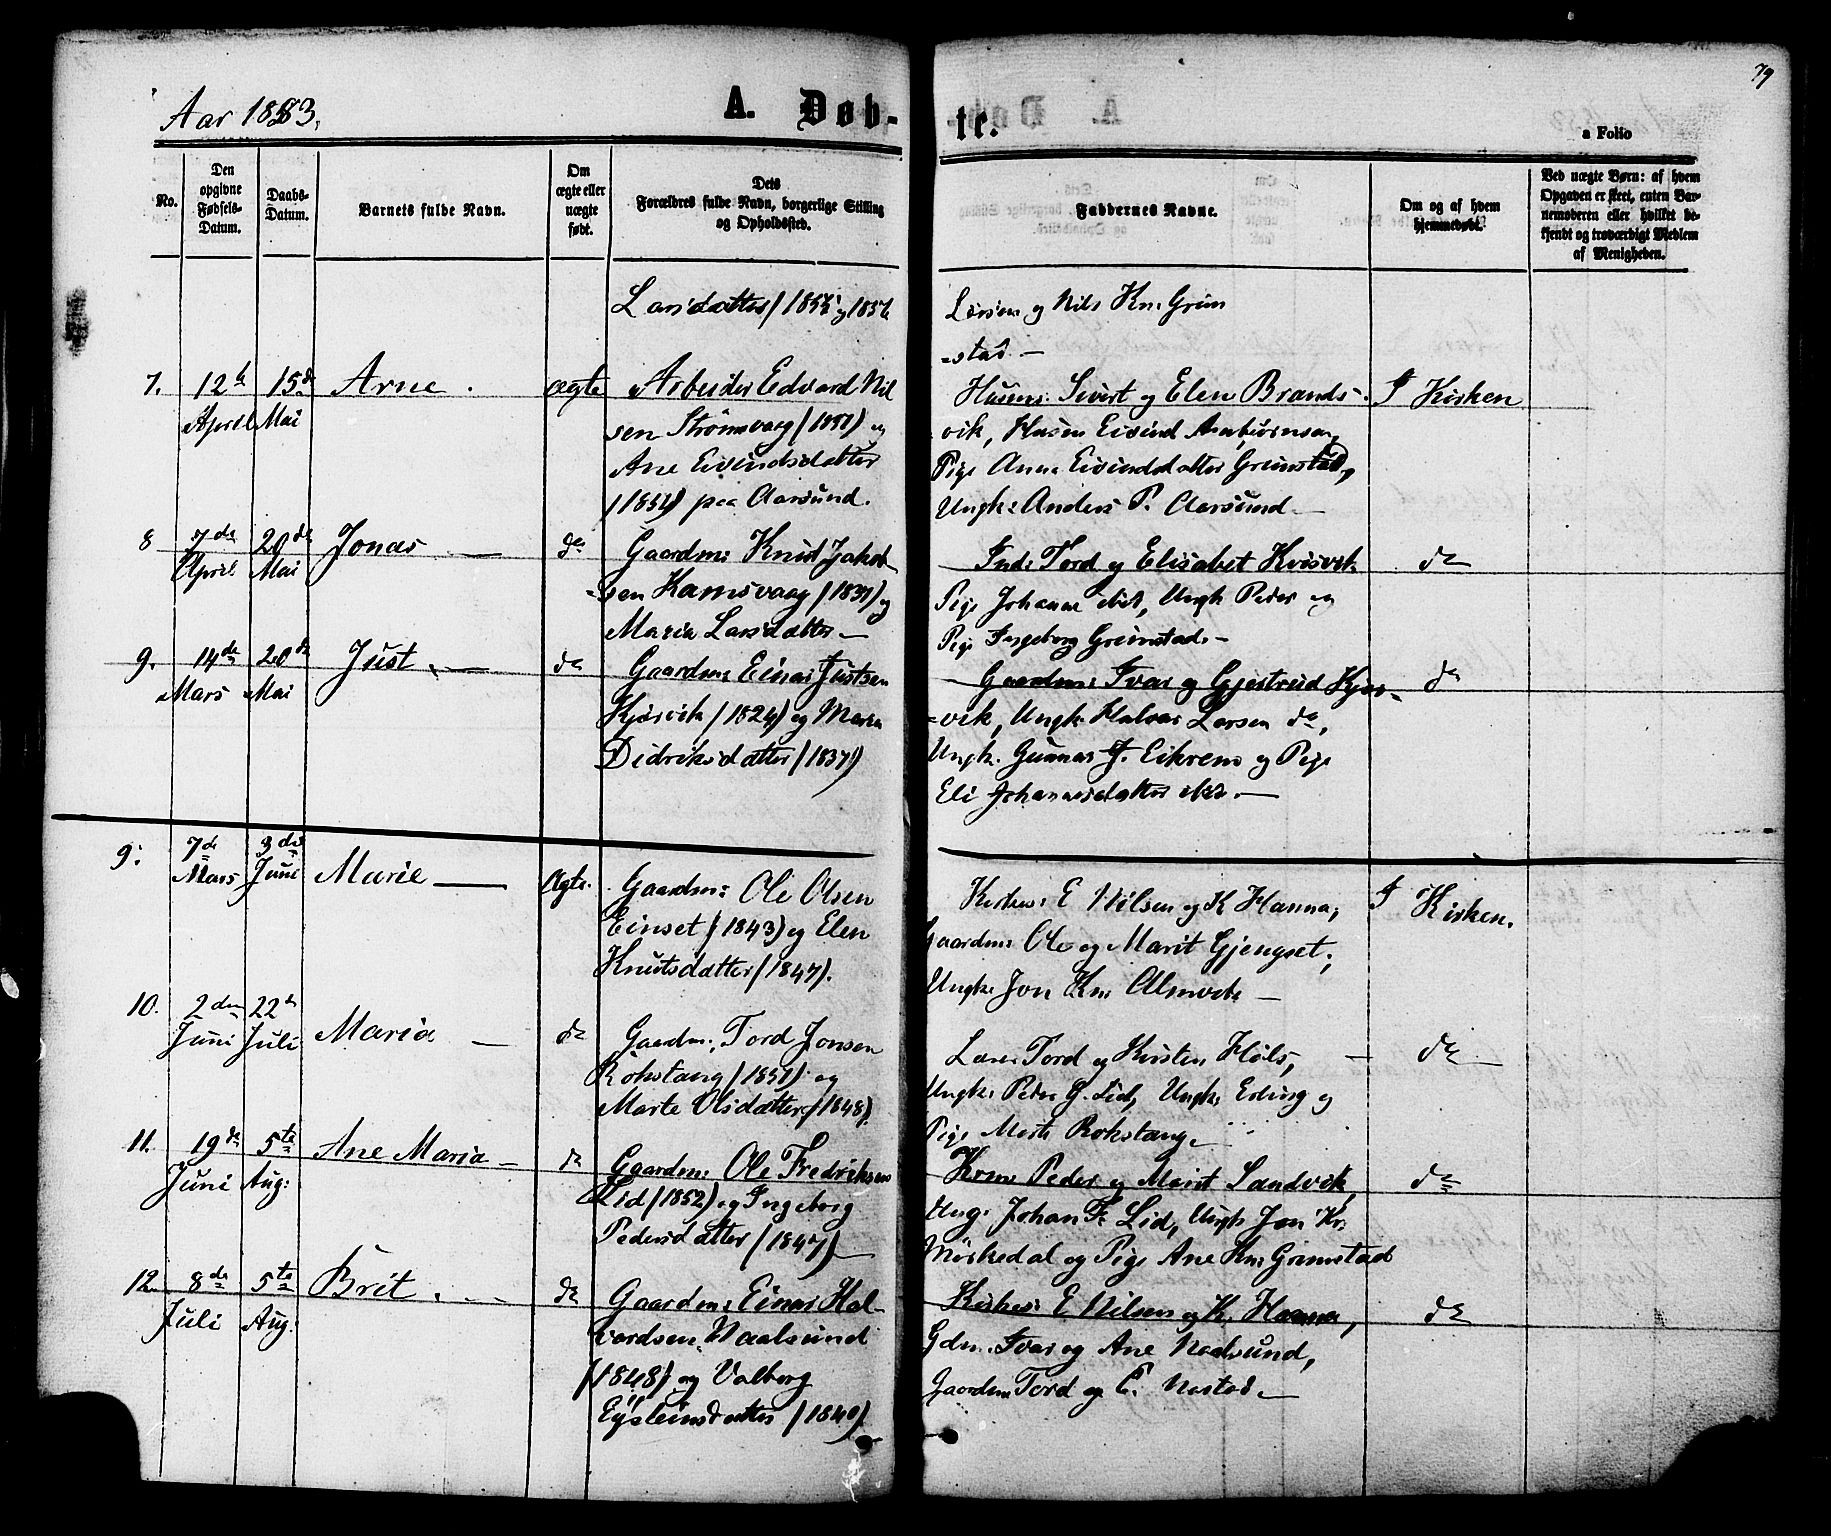 79
Aar 1883.
A. Døb-
te.
a Folio
No.
Den
opgivne
Fødsels-
Datum.
Daabs-
Datum.
Barnets fulde Navn.
Om
ægte eller
uægte
født.
Dets
Forældres fulde Navn, borgerlige Stilling
og Opholdssted.
Faddernes Navne.
Om og af hvem
hjemmedøbt.
Ved uægte Børn: af hvem
Opgaven er skeet, enten Bar-
nemoderen eller hvilket be-
kjendt og troværdigt Medlem
af Menigheden.
Larsdatter
Larsen og Nils Kn. Grim
-stad. —
7.
12te
April
15de
Mai
Arne.
ægte
Arbeider Edvard Nil
sen Strømsvaag (1851) og
Ane Eivindsdatter
(1854) paa Aarsund.
Husm: Sivert og Elen Brands-
vik, Husm Eivind
Pige Anne Eivindsdatter Grimstad,
Ungk: Anders P. Aarsund. —
I Kirken
8
7de
April
20de
Mai
Jonas —
do
Gaardm: Knud Jakob
-sen Ramsvaag (1831) og
Maria Larsdatter —
Ind: Tord og Elisabet Kvisvik
Pige Johanne ibid, Ungk Peder og
Pige Ingeborg Grimstad. —
do
9.
14de
Mars
20de
Mai
Just. —
do
Gaardm: Einar Justsen
Kjørvik (1824) og Maria
Didriksdatter (1837)
Gaardm: Ivar og Gjertrud Kjør-
-vik, Ungk: Halvar Larsen do,
Ungk. Gunnar J. Eikrem og Pige
Eli Johannesdatter ibid. —
do
9.
7de
Mars
3die
Juni
Marie —
Ægte.
Gaardm: Ole Olsen
Einset (1843) og Elen
Knutsdatter (1847).
Kirkes: E Nilsen og K Hanna,
Gaardm: Ole og Marit Gjengset,
Ungk: Jon Kn. Almvik —
I Kirken.
10.
2den
Juni
22de
Juli
Maria —
do
Gaardm: Tord Jonsen
Rokstang (1851) og
Marte Olsdatter (1848).
Lærer Tord og Kirsten Hals, —
Ungk: Peder G. Lid, Ungk: Erling og
Pige Marta Rokstang.
do —
11.
19de
Juni
5te
Aug:
Ane Maria —
do
Gaardm: Ole Fredriksen
Lid (1852) og Ingeborg
Pedersdatter (1847) —
Krm: Peder og Marit Sandvik,
Ung: Johan F. Lid, Ungk Jon Kr.
Mørkedal og Pige Ane Kn. Grimstad
do
12.
8de
Juli
5te
Aug:
Brit. —
do
Gaardm: Einar Hal-
vordsen Naalsund
(1848) og Valborg
Eysteinsdatter (1840)
Kirkes: E Nilsen og K. Hanna,
Gdm. Ivar og Ane Naalsund,
Gaardm Tord og E. Nastad. —
do